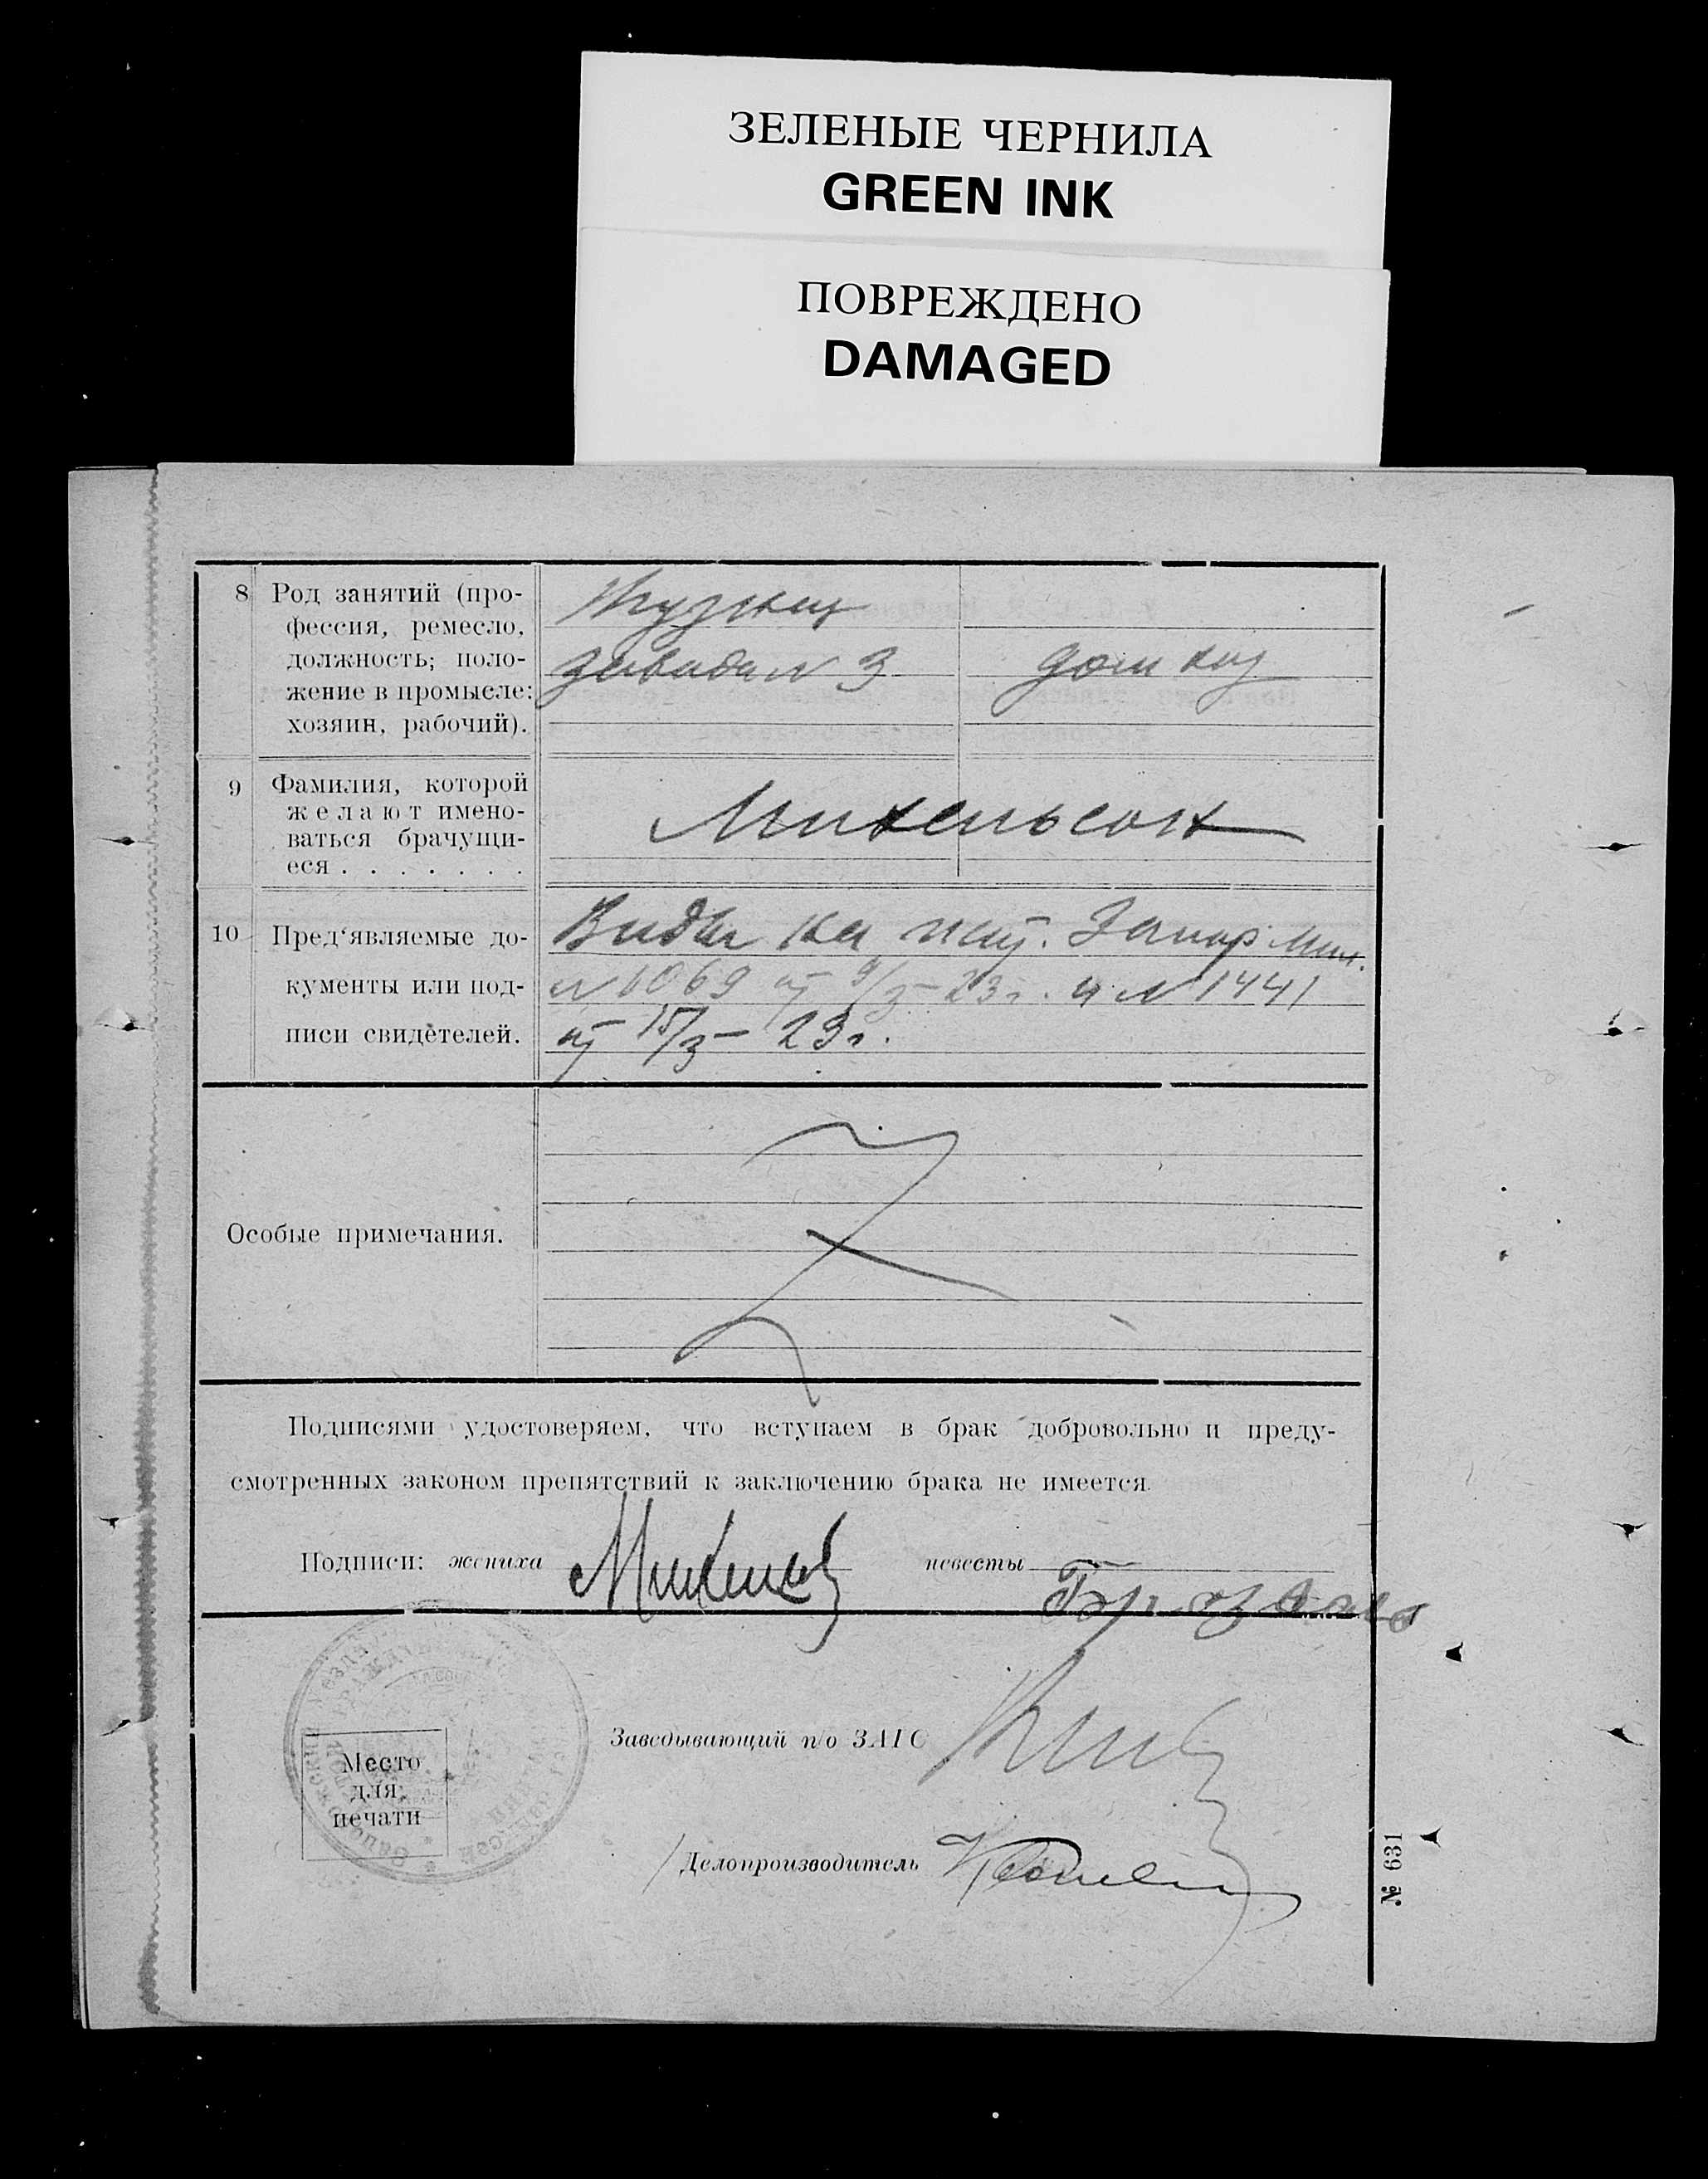 ЗЕЛЕНЫЕ ЧЕРНИЛА
GREEN INK
ПОВРЕЖДЕНО
DAMAGED
8 Род занятий (про-
фессия, ремесло,
должность; поло-
жение в промысле:
хозяин, рабочий).
завода № 3
дом хоз
9 Фамилия, которой
желают имено-
ваться брачущи-
еся . . . . . . .
Михельсон
10 Пред‘являемые до-
кументы или под-
писи свидетелей.
Виды на жит. Запор
№ 1069 от 9/3 – 23 г. и № 1441
от 15/3 – 23 г.
Особые примечания.
Подписями удостоверяем, что вступаем в брак добровольно и преду-
смотренных законом препятствий к заключению брака не имеется.
Подписи: жениха невесты
Заведывающий п/о ЗАГС
Место
для
печати
Делопроизводитель
№ 631